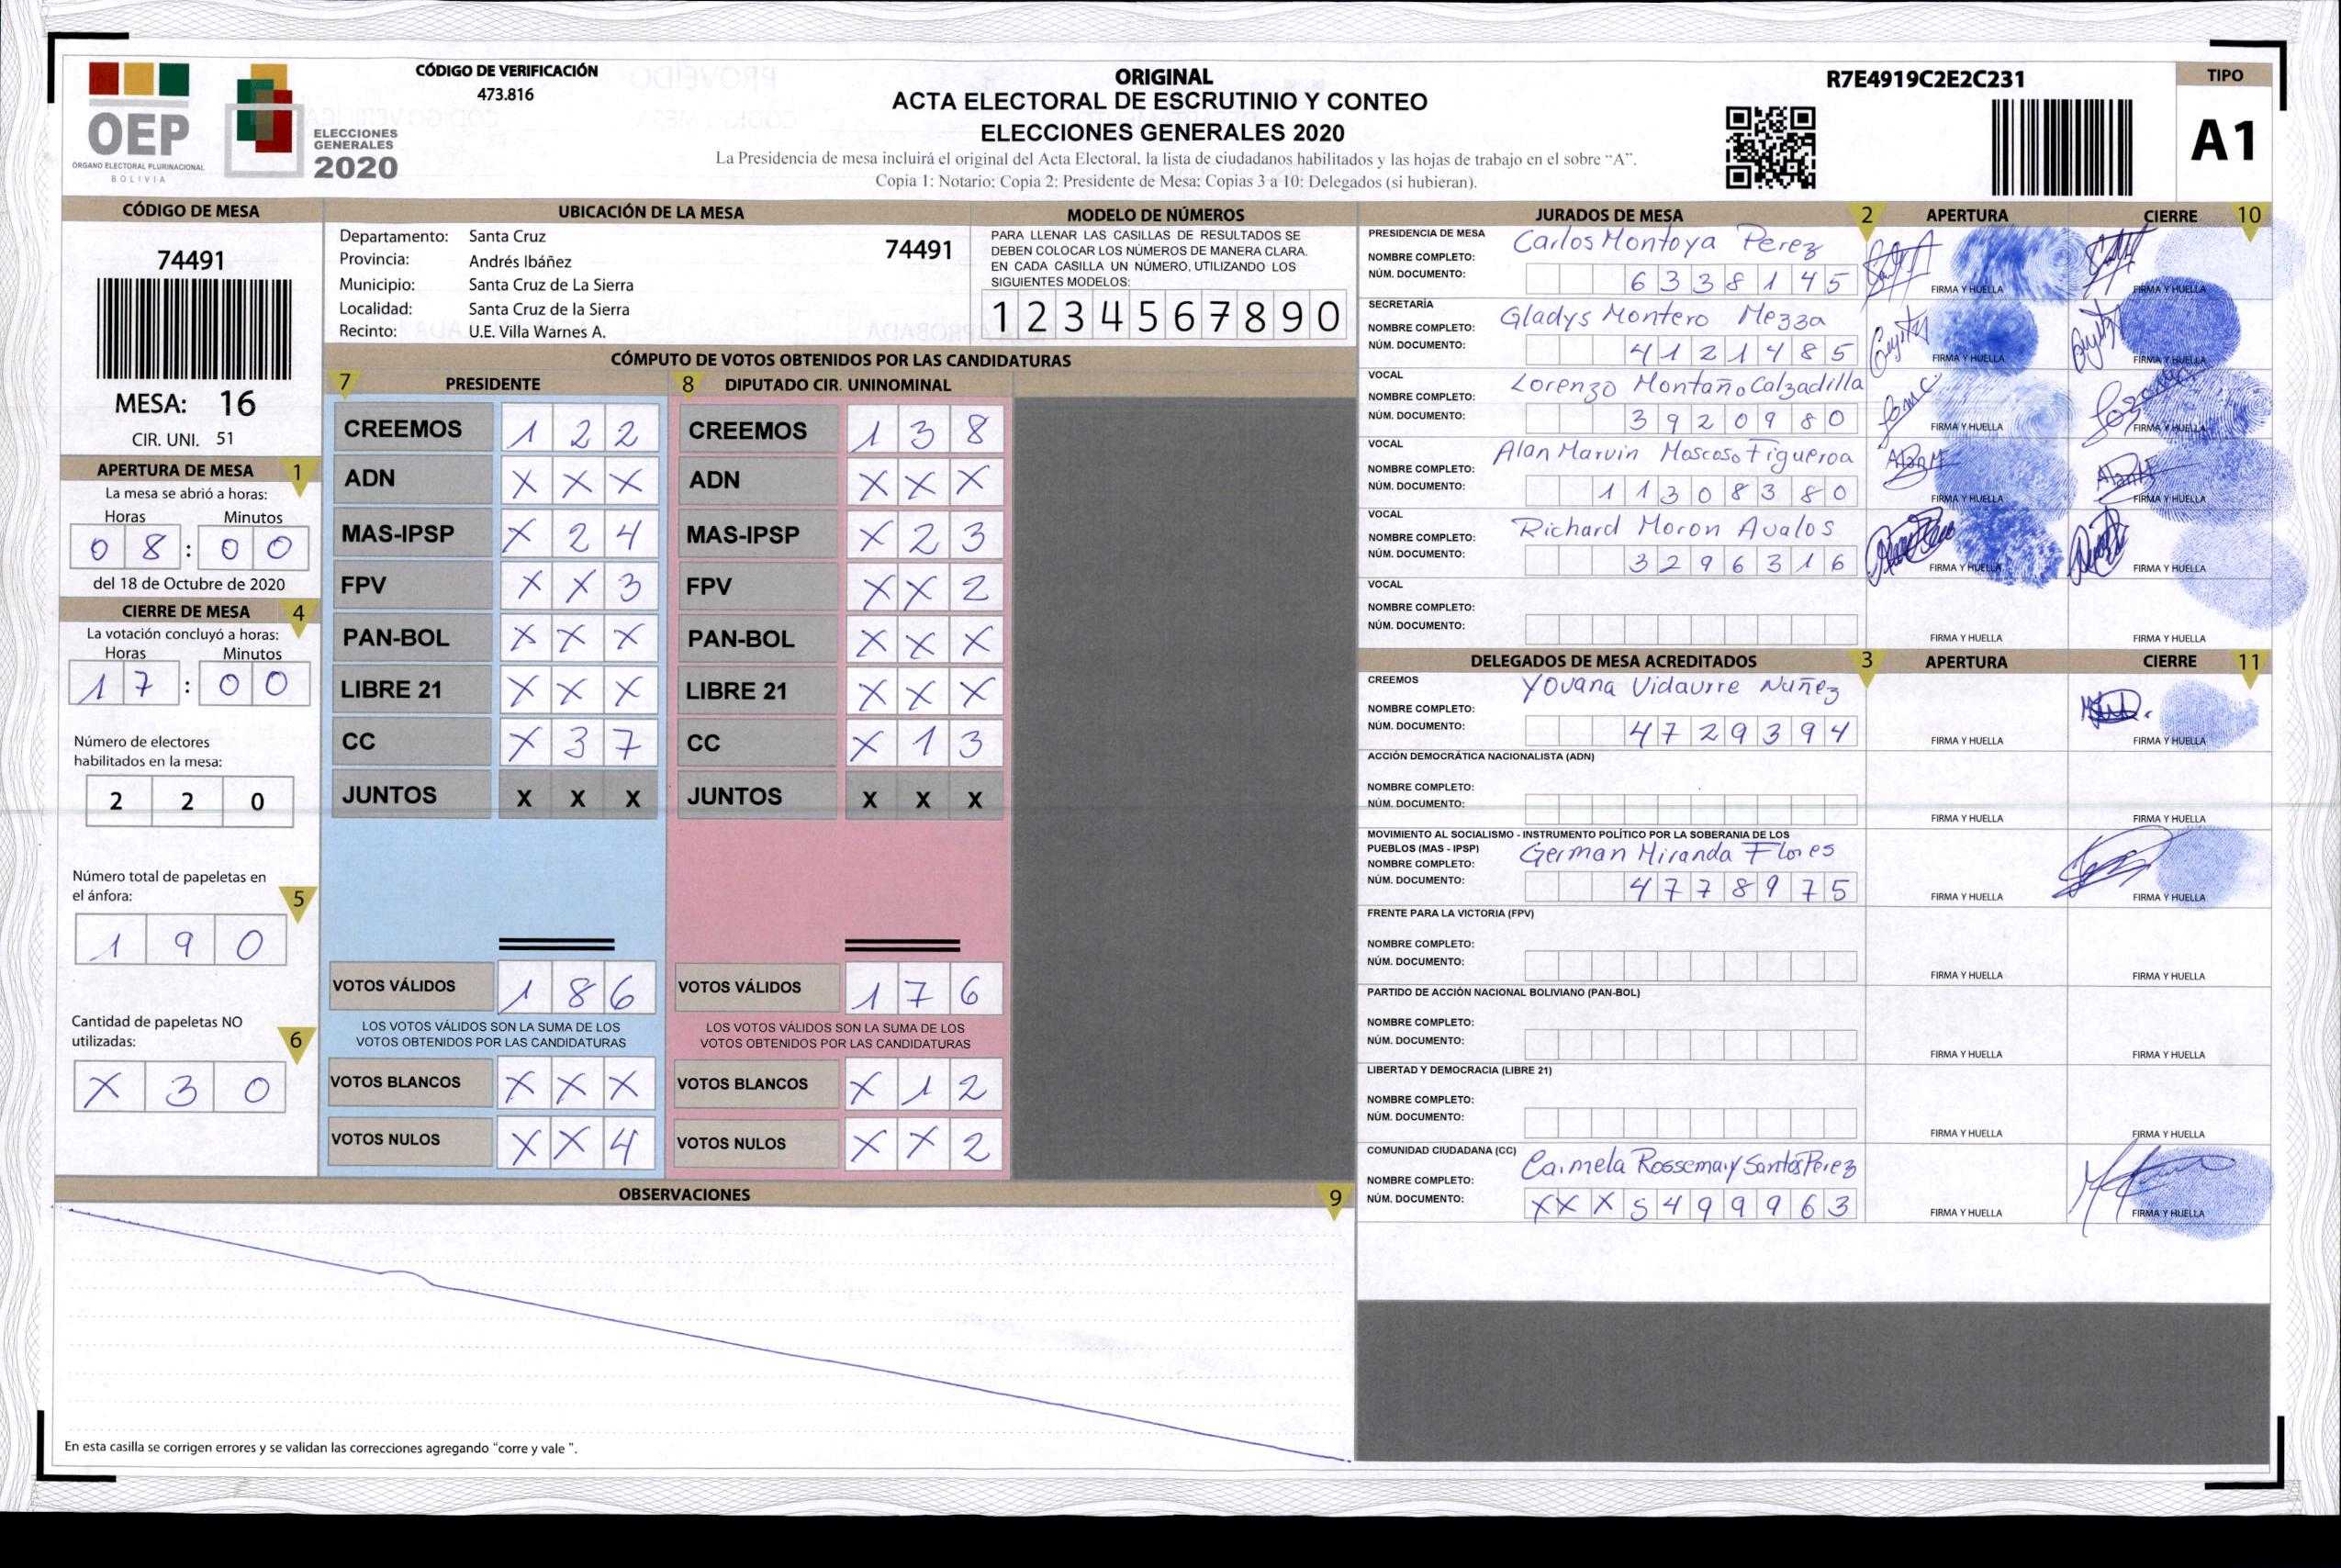 CÓDIGO DE VERIFICACIÓN
473.816
OEP
ÓRGANO ELECTORAL PLURINACIONAL
BOLIVIA
ELECCIONES
GENERALES
2020
ORIGINAL
ACTA ELECTORAL DE ESCRUTINIO Y CONTEO
ELECCIONES GENERALES 2020
La Presidencia de mesa incluirá el original del Acta Electoral, la lista de ciudadanos habilitados y las hojas de trabajo en el sobre “A”.
Copia 1: Notario; Copia 2: Presidente de Mesa; Copias 3 a 10: Delegados (si hubieran).
R7E4919C2E2C231
TIPO
A1
CÓDIGO DE MESA
74491
MESA: 16
CIR. UNI. 51
APERTURA DE MESA 1
La mesa se abrió a horas:
Horas Minutos
0 8 : 0 0
del 18 de Octubre de 2020
CIERRE DE MESA 4
La votación concluyó a horas:
Horas Minutos
1 7 : 0 0
Número de electores
habilitados en la mesa:
2 2 0
Número total de papeletas en
el ánfora: 5
1 9 0
Cantidad de papeletas NO
utilizadas: 6
X 3 0
UBICACIÓN DE LA MESA
Departamento: Santa Cruz 74491
Provincia: Andrés Ibáñez
Municipio: Santa Cruz de La Sierra
Localidad: Santa Cruz de la Sierra
Recinto: U.E. Villa Warnes A.
MODELO DE NÚMEROS
PARA LLENAR LAS CASILLAS DE RESULTADOS SE
DEBEN COLOCAR LOS NÚMEROS DE MANERA CLARA.
EN CADA CASILLA UN NÚMERO, UTILIZANDO LOS
SIGUIENTES MODELOS:
1 2 3 4 5 6 7 8 9 0
CÓMPUTO DE VOTOS OBTENIDOS POR LAS CANDIDATURAS
7 PRESIDENTE
CREEMOS 1 2 2
ADN X X X
MAS-IPSP X 2 4
FPV X X 3
PAN-BOL X X X
LIBRE 21 X X X
CC X 3 7
JUNTOS X X X
VOTOS VÁLIDOS 1 8 6
LOS VOTOS VÁLIDOS SON LA SUMA DE LOS
VOTOS OBTENIDOS POR LAS CANDIDATURAS
VOTOS BLANCOS X X X
VOTOS NULOS X X 4
8 DIPUTADO CIR. UNINOMINAL
CREEMOS 1 3 8
ADN X X X
MAS-IPSP X 2 3
FPV X X 2
PAN-BOL X X X
LIBRE 21 X X X
CC X 1 3
JUNTOS X X X
VOTOS VÁLIDOS 1 7 6
LOS VOTOS VÁLIDOS SON LA SUMA DE LOS
VOTOS OBTENIDOS POR LAS CANDIDATURAS
VOTOS BLANCOS X 1 2
VOTOS NULOS X X 2
OBSERVACIONES 9
En esta casilla se corrigen errores y se validan las correcciones agregando “corre y vale ”.
JURADOS DE MESA 2 APERTURA CIERRE 10
PRESIDENCIA DE MESA
NOMBRE COMPLETO: Carlos Montoya Perez
NÚM. DOCUMENTO: 6 3 3 8 1 4 5
FIRMA Y HUELLA FIRMA Y HUELLA
SECRETARÍA
NOMBRE COMPLETO: Gladys Montero Mezza
NÚM. DOCUMENTO: 4 1 2 1 4 8 5
FIRMA Y HUELLA FIRMA Y HUELLA
VOCAL
NOMBRE COMPLETO: Lorenzo Montaño Calzadilla
NÚM. DOCUMENTO: 3 9 2 0 9 8 0
FIRMA Y HUELLA FIRMA Y HUELLA
VOCAL
NOMBRE COMPLETO: Alan Marvin Moscoso Figueroa
NÚM. DOCUMENTO: 1 1 3 0 8 3 8 0
FIRMA Y HUELLA FIRMA Y HUELLA
VOCAL
NOMBRE COMPLETO: Richard Moron Avalos
NÚM. DOCUMENTO: 3 2 9 6 3 1 6
FIRMA Y HUELLA FIRMA Y HUELLA
VOCAL
NOMBRE COMPLETO:
NÚM. DOCUMENTO:
FIRMA Y HUELLA FIRMA Y HUELLA
DELEGADOS DE MESA ACREDITADOS 3 APERTURA CIERRE 11
CREEMOS
NOMBRE COMPLETO: Yovana Vidaurre Nuñez
NÚM. DOCUMENTO: 4 7 2 9 3 9 4
FIRMA Y HUELLA FIRMA Y HUELLA
ACCIÓN DEMOCRÁTICA NACIONALISTA (ADN)
NOMBRE COMPLETO:
NÚM. DOCUMENTO:
FIRMA Y HUELLA FIRMA Y HUELLA
MOVIMIENTO AL SOCIALISMO - INSTRUMENTO POLÍTICO POR LA SOBERANIA DE LOS
PUEBLOS (MAS - IPSP)
NOMBRE COMPLETO: German Miranda Flores
NÚM. DOCUMENTO: 4 7 7 8 9 7 5
FIRMA Y HUELLA FIRMA Y HUELLA
FRENTE PARA LA VICTORIA (FPV)
NOMBRE COMPLETO:
NÚM. DOCUMENTO:
FIRMA Y HUELLA FIRMA Y HUELLA
PARTIDO DE ACCIÓN NACIONAL BOLIVIANO (PAN-BOL)
NOMBRE COMPLETO:
NÚM. DOCUMENTO:
FIRMA Y HUELLA FIRMA Y HUELLA
LIBERTAD Y DEMOCRACIA (LIBRE 21)
NOMBRE COMPLETO:
NÚM. DOCUMENTO:
FIRMA Y HUELLA FIRMA Y HUELLA
COMUNIDAD CIUDADANA (CC)
NOMBRE COMPLETO: Carmela Rossemary Santos Perez
NÚM. DOCUMENTO: X X X 5 4 9 9 9 6 3
FIRMA Y HUELLA FIRMA Y HUELLA